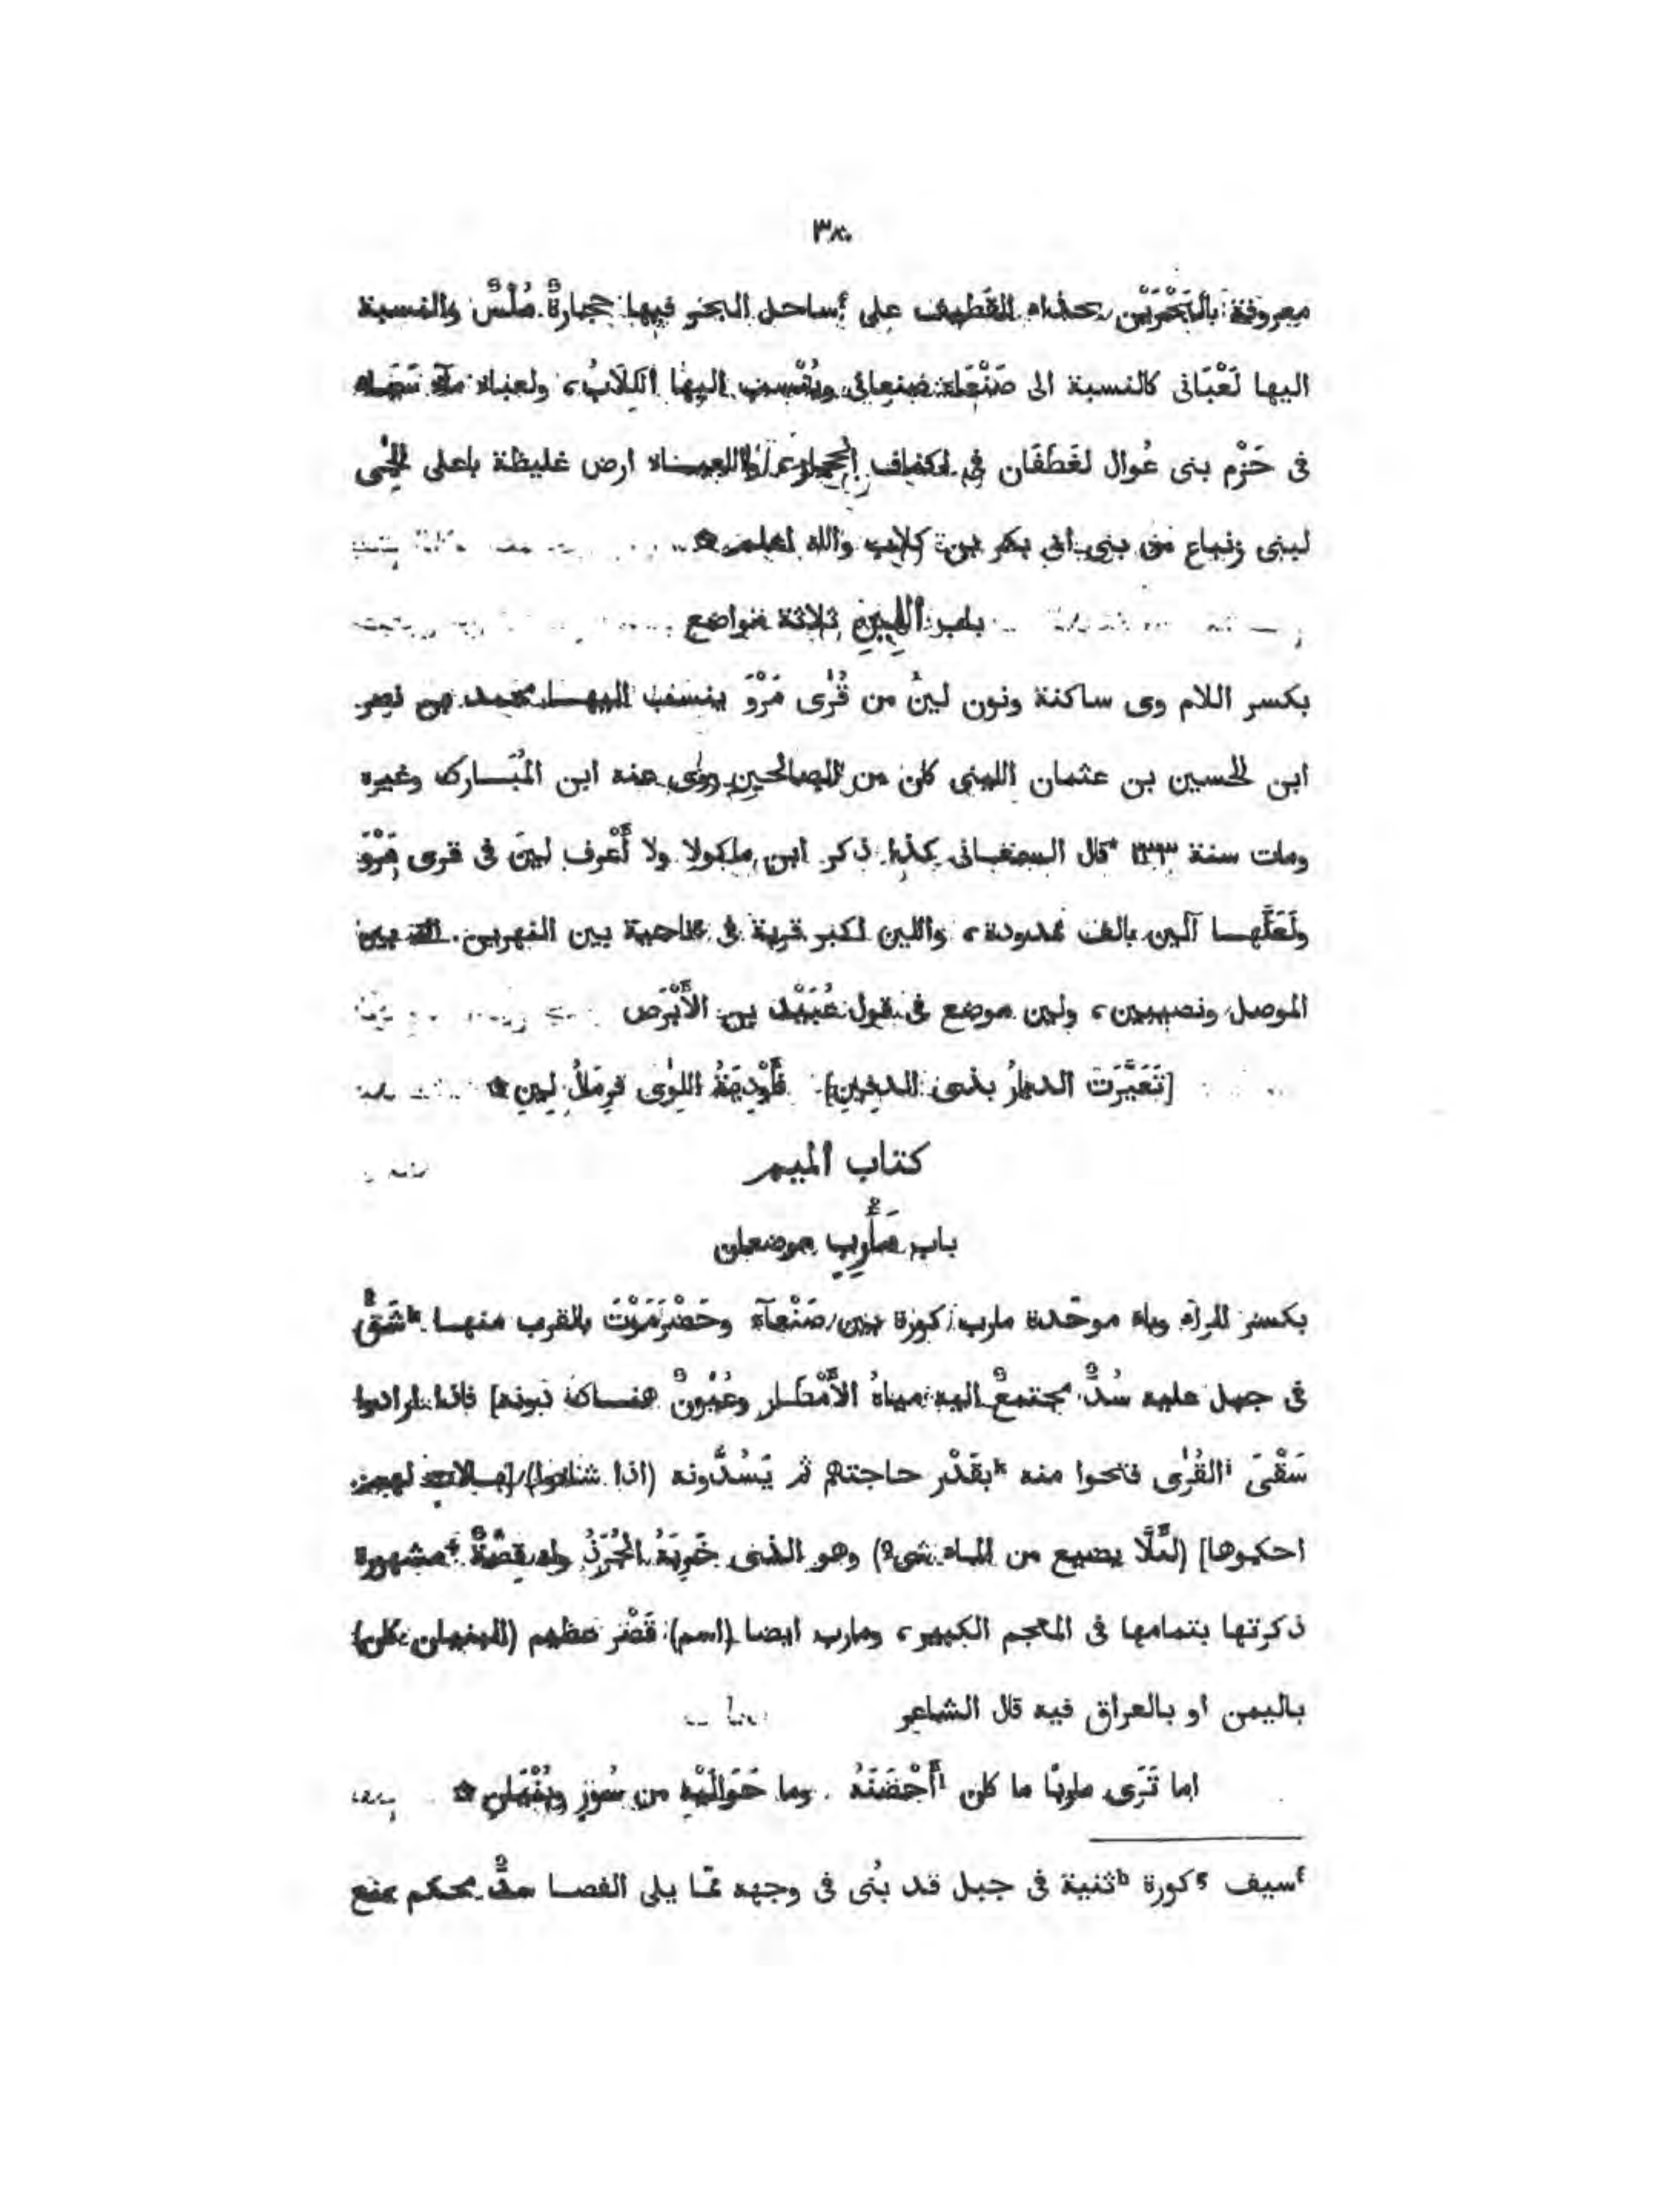 ٣٨٠
معروفة بالبَحْرَيْن بحذاء القَطِيف على ساحل البحر فيها حجارةٌ مُلْسٌ والنسبة
اليها لَعْبَانى كالنسبة الى صَنْعَاء صنعانى ويُنْسب اليها الكِلَابُ، ولعباء مآء سَمَاء
فى حَزْم بنى عُوال لغَطَفَان فى اكناف الحجاز، واللعباء ارض غليظة باعلى الحِمى
لبنى زنباع من بنى ابى بكر بن كلاب والله اعلم ۞
باب اللِينِ ثلاثة مواضع
بكسر اللام وى ساكنة ونون لينُ من قُرٰى مَرْوَ ينسب اليهـا محمد بن نصر
ابن الحسين بن عثمان اللينى كان من الصالحين روٰى عنه ابن المُبَـارك وغيره
ومات سنة ٢٣٣ قال السمعانى كذا ذكر ابن ماكولا ولا أَعْرف لينَ فى قرى مَرْوَ
ولَعَلَّهـا آلين بالف ممدودة، واللين اكبر قرية فى ناحية بين النهرين التى بين
الموصل ونصيبين، ولين موضع فى قول عُبَيْد بن الأَبْرَص
[تَغَيَّرَت الديارُ بذى الدفينِ] فَأَوْدِيَةُ اللِوٰى فرِمَالُ لينِ ۞
كتاب الميم
باب مَأْرِبِ موضعان
بكسر الراء وباء موحّدة مارب كورة بين صَنْعآء وحَضْرَمَوْتَ بالقرب منهـا شَقٌّ
فى جبل عليه سُدٌّ مجتمعٌ اليه مياهُ الأَمْطَـار وعُيُونٌ هنـاك دونه] فاذا ارادوا
سَقْىَ القُرٰى فتحوا منه بقَدْر حاجتهم ثم يَسُدُّونه (اذا شاءوا)
احكموها] (لئَلَّا يضيع من الماء شى) وهو الذى خَرِبَهُ الجُرَذُ وله قصّةٌ مشهورة
ذكرتها بتمامها فى المعجم الكبير، ومارب ايضا (اسم) قَصْر عظيم (البنيان كان)
باليمن او بالعراق فيه قال الشاعر
اما تَرَى ماربًا ما كان أَحْصَنَهُ وما حَوَالَيْهِ من سُورٍ وبُنْيَانِ ۞
سيف كورة ثنية فى جبل قد بُنى فى وجهه ممّا يلى الفضـا سدٌّ محكم يمنع